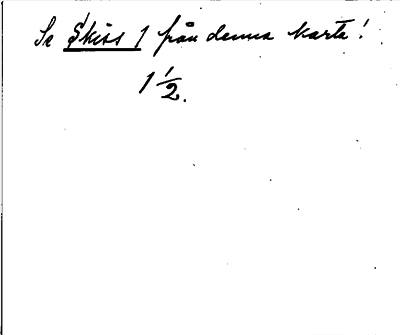 Se Skiss 1 från denna karta!
1 1/2.